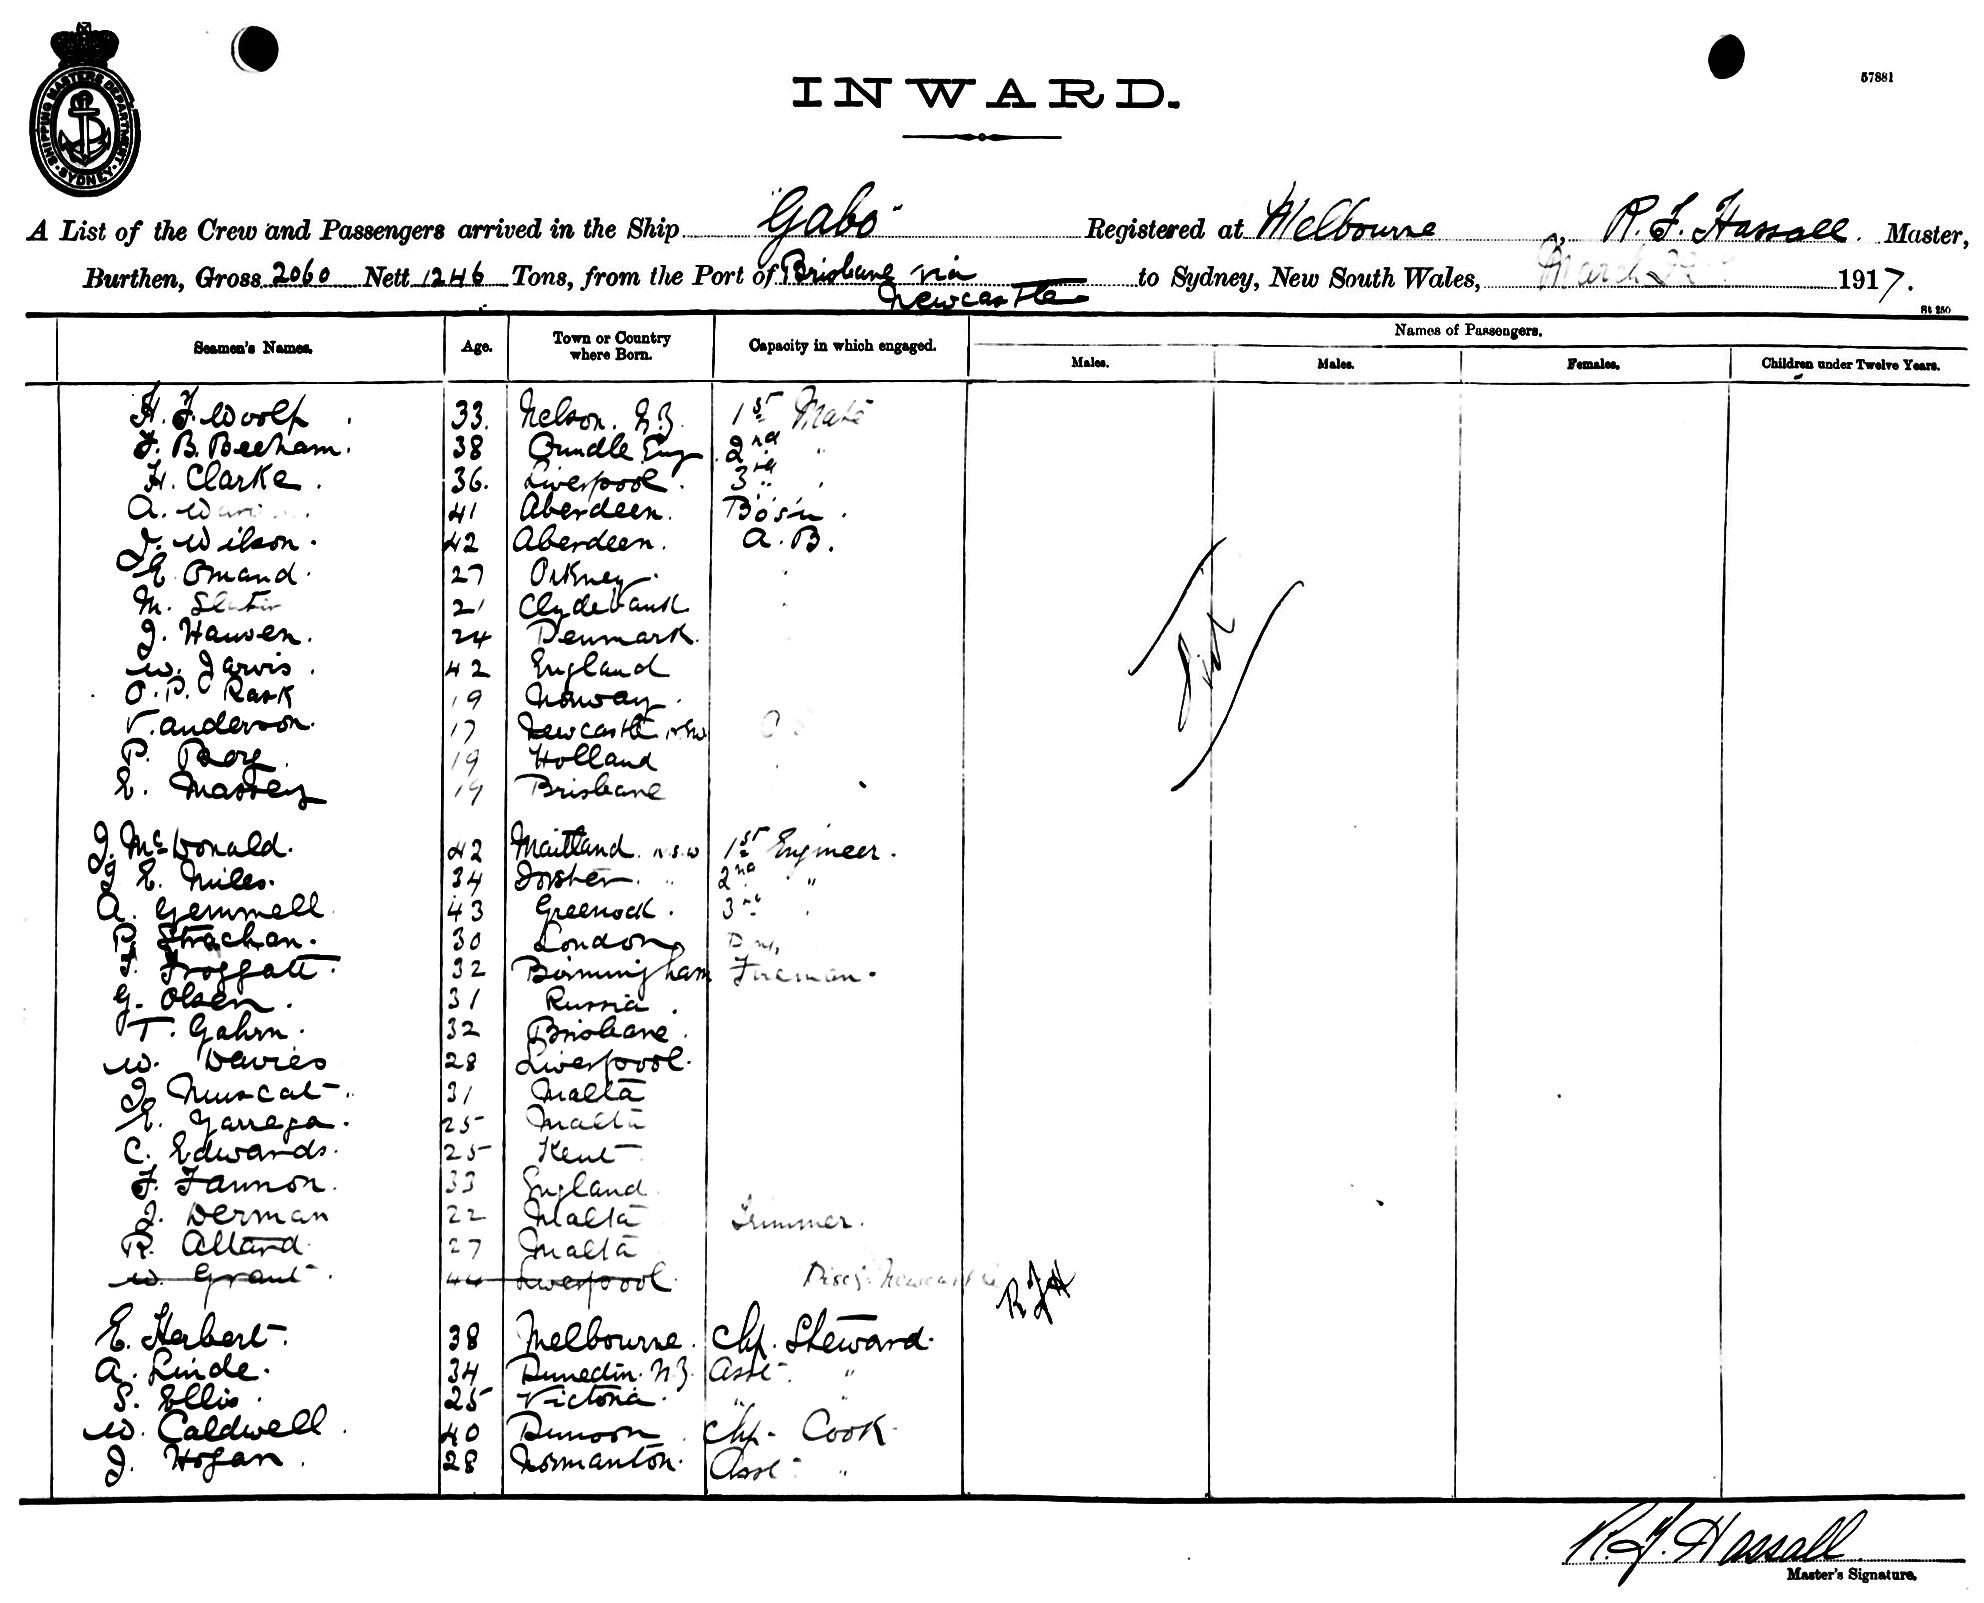 SHIPPING MASTERS DEPARTMENT
SYDNEY
57881
INWARD.
A List of the Crew and Passengers arrived in the Ship "Gabo" Registered at Melbourne R. F. Hassall. Master,
Burthen, Gross 2060 Nett 1246 Tons, from the Port of Brisbane via Newcastle to Sydney, New South Wales, March 1917.
St 250
Seamen's Names. Age. Town or Country where Born. Capacity in which engaged. Names of Passengers.
Males. Males. Females. Children under Twelve Years.
H. F. Woolf 33. Nelson. N.Z. 1st Mate
F. B. Beeham. 38 Oundle Eng 2nd "
H. Clarke. 36. Liverpool. 3rd "
A. 41 Aberdeen. Bos'n.
J. Wilson. 42 Aberdeen. A.B.
E. Omand. 27 Orkney.
M. Slater 21 Clydebank
J. Hansen. 24 Denmark.
W. Jarvis. 42 England
O. P. Rask 19 Norway.
V. Anderson. 17 Newcastle N.S.W O S
P. Booy. 19 Holland
E. Massey 19 Brisbane
J. McDonald. 42 Maitland N.S.W 1st Engineer.
J. E. Miles. 34 Forster. " 2nd "
A. Gemmell 43 Greenock. 3rd "
P. Strachan. 30 London
F. Froggatt. 32 Birmingham Fireman.
G. Olsen. 31 Russia.
T. Gahrn. 32 Brisbane.
W. Davies 28 Liverpool.
J. Muscat. 31 Malta
E. Garrega. 25 Malta
C. Edwards. 25 Kent
F. Fannon. 33 England.
J. Derman 22 Malta Trimmer.
R. Attard. 27 Malta
W. Grant. 44 Liverpool. Disc'g. Newcastle RFH
E. Herbert. 38 Melbourne. Chf. Steward.
A. Linde. 34 Dunedin. N.Z. Asst. "
S. Ellis. 25 Victoria. " "
W. Caldwell. 40 Dunoon Chf. Cook.
J. Hogan. 28 Normanton. Asst. "
R. F. Hassall
Master's Signature.